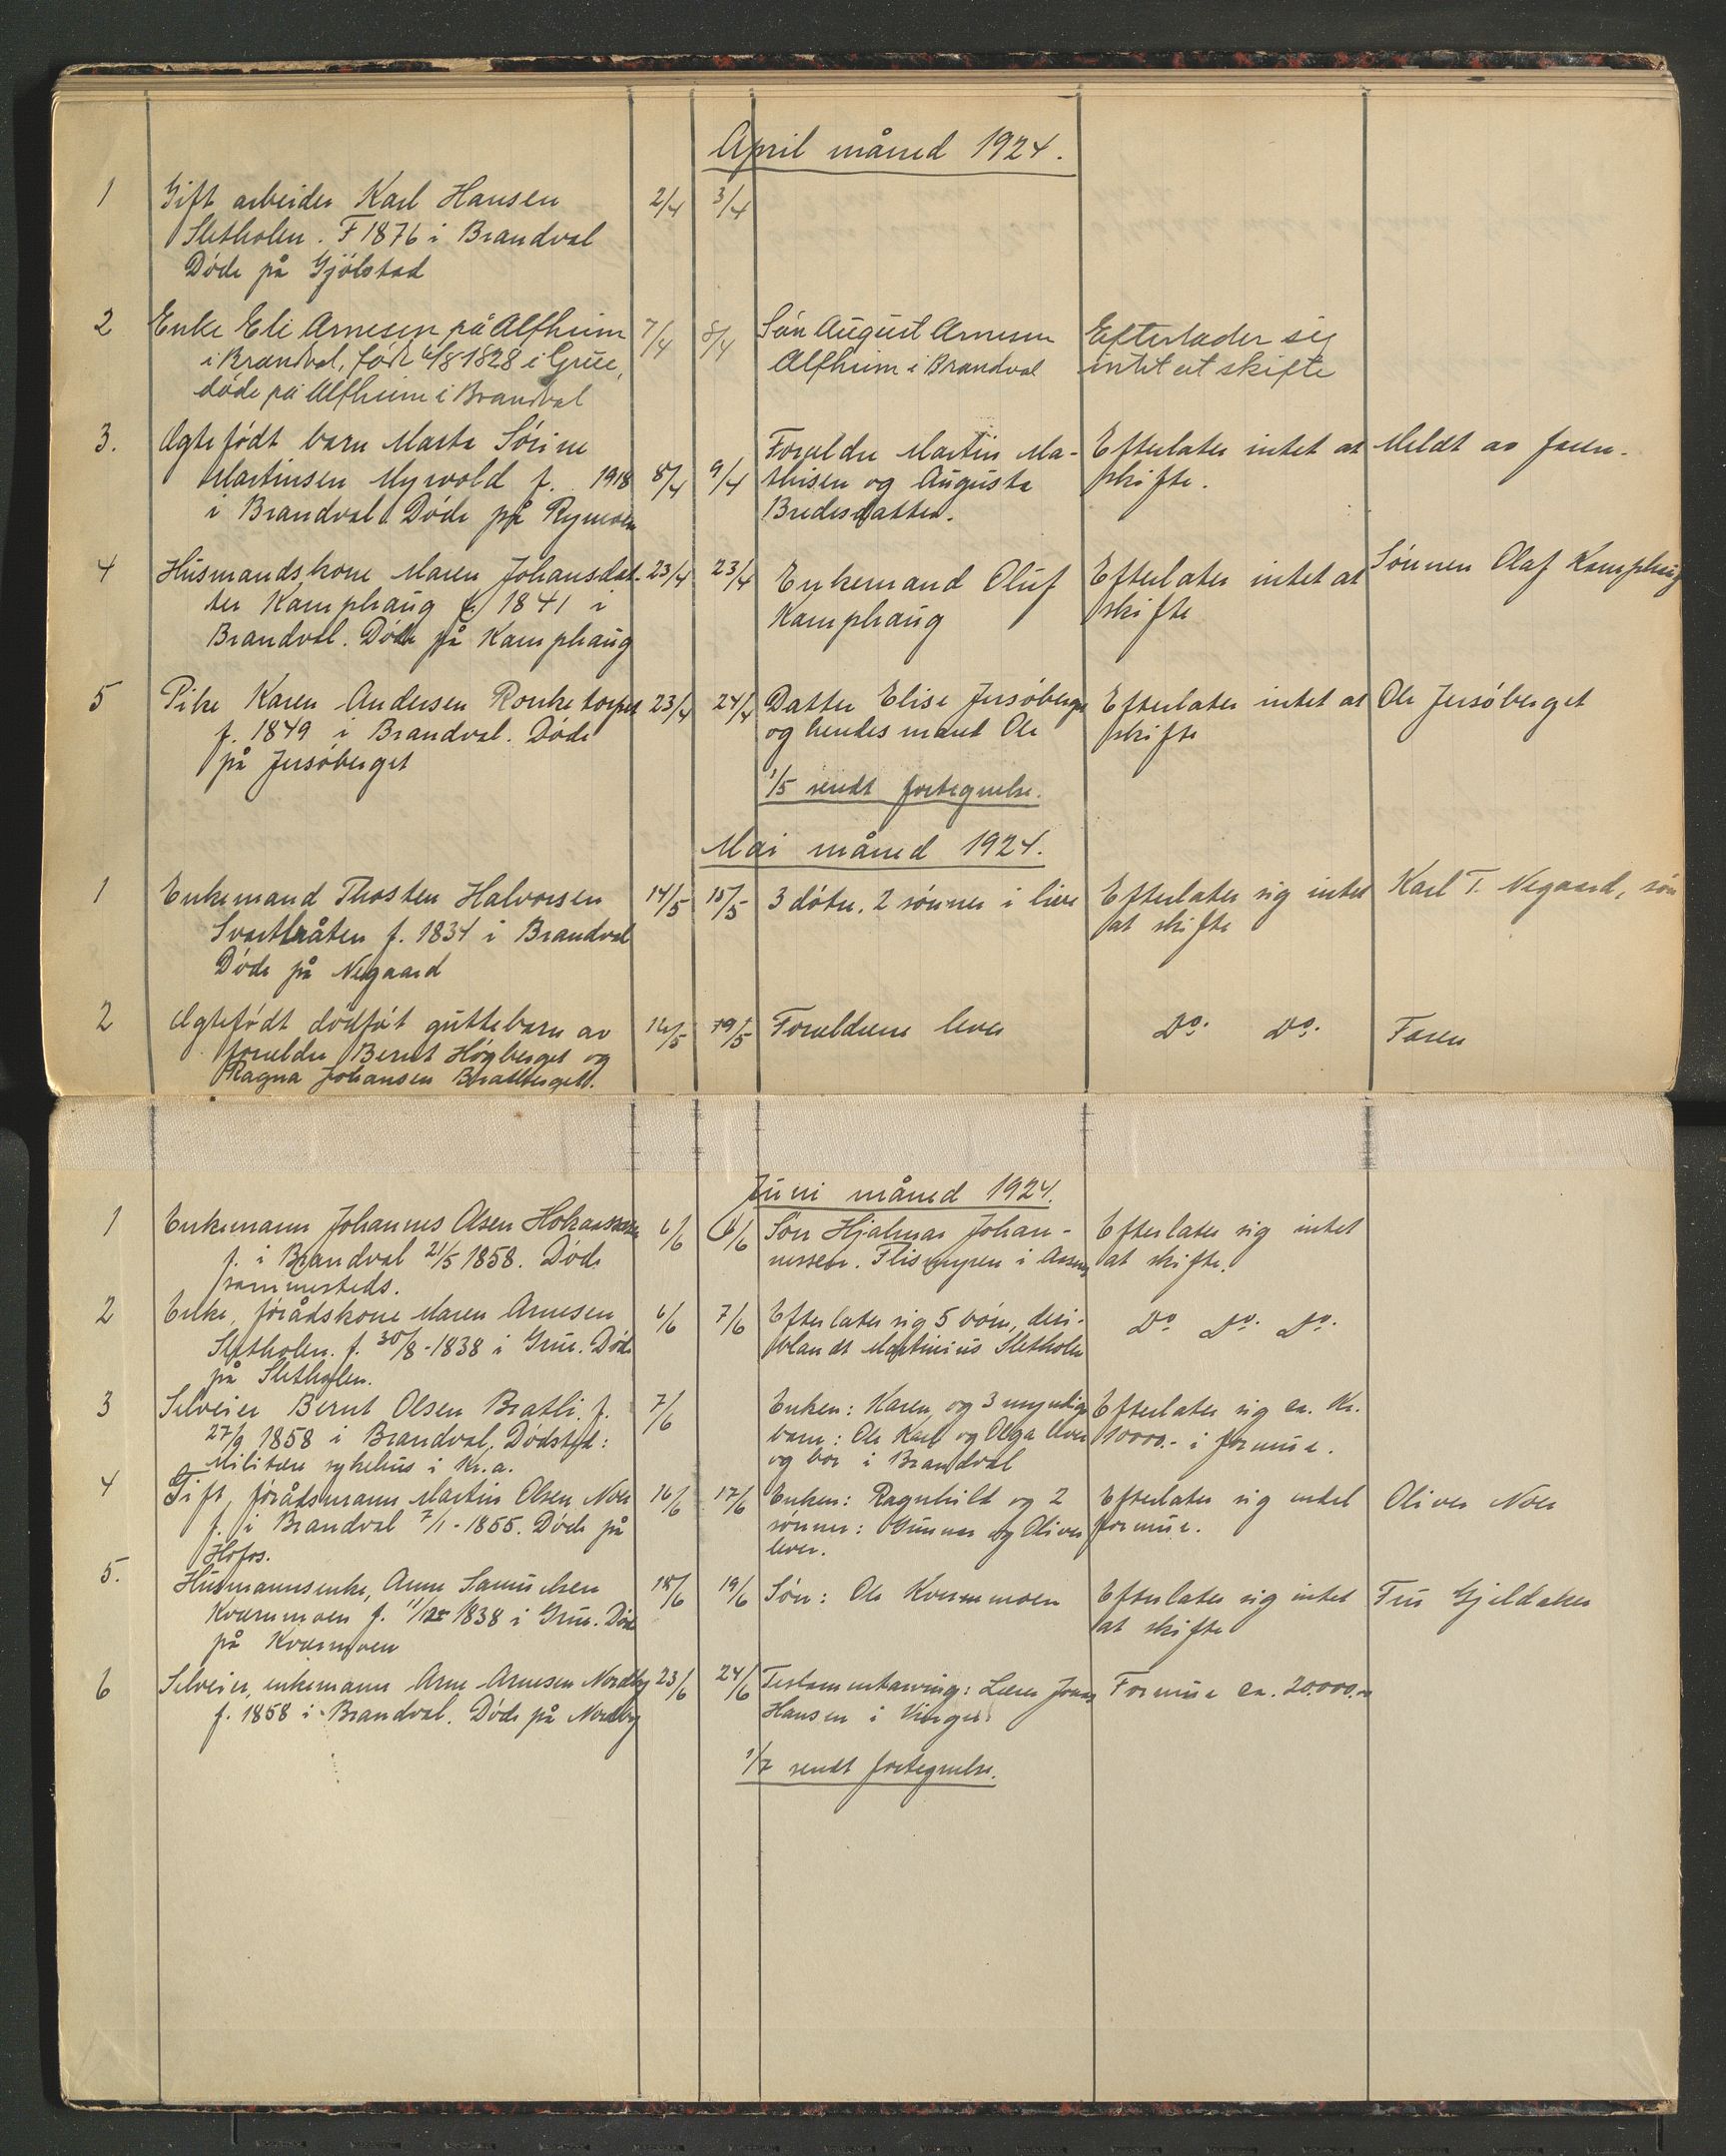 April måned 1924.
1 Gift arbeider Karl Hansen 2/4 3/4
Sletholen. F 1876 i Brandval
Døde på Gjølstad
2 Enke Eli Arnesen på Alfheim 7/4 8/4 Søn August Arnesen Efterlader sig
i Brandval, født 4/8 1828 i Grue, Alfheim i Brandval intet at skifte
døde på Alfheim i Brandval
3. Ægtefødt barn Marta Sørine Foreldre Martin Ma- Efterlater intet at Meldt av faren.
Martinsen Myrvold f. 1918 8/4 9/4 thisen og Augusta skifte.
i Brandval. Døde på Rymoen Bredesdatter.
4 Husmandskone Maren Johansdat- 23/4 23/4 Enkemand Oluf Efterlater intet at Sønnen Olaf Kamphaug
ter Kamphaug f. 1841 i Kamphaug skifte
Brandval. Døde på Kamphaug
5 Pike Karen Andersen 23/4 24/4 Datter Elise Jersøberget Efterlater intet at Ole Jersøberget
f. 1849 i Brandval. Døde og hendes mand Ole skifte
på Jersøberget
1/5 sendt fortegnelse.
Mai måned 1924.
1 Enkemand Thosten Halvorsen 14/5 15/5 3 døtre, 2 sønner i live Efterlater sig intet Karl T. Negaard, søn
Svartbråten f. 1834 i Brandval at skifte
Døde på Negaard
2 Ægtefødt dødføt guttebarn av 16/5 19/5 Foreldrene lever Do. Do. Faren
foreldre Bernt Høgberget og
Ragna Johansen Bratberget.
Juni måned 1924.
1 Enkemann Johannes Olsen 6/6 6/6 Søn Hjalmar Johan- Efterlater sig intet
f. i Brandval 21/5 1858. Døde nessen. Flismyren i Åsnes at skifte.
sammesteds.
2 Enke, førådskone Maren Arnesen 6/6 7/6 Efterlater sig 5 børn, deri- Do Do. Do.
Sletholen. f. 30/8-1838 i Grue. Døde blandt Martinius Sletholen
på Sletholen.
3 Selveier Bernt Olsen Bratli. f. 7/6 Enken: Karen, og 3 myndige Efterlater sig ca. Kr.
27/9 1858 i Brandval. Dødsted: barn: Ole Karl og Olga lever 10000.- i formue.
Militære sykehus i Kr.a. og bor i Brandval
4 Gift, førådsmann Martin Olsen Noer 16/6 17/6 Enken: Ragnhild og 2 Efterlater sig intet Oliver Noer
f. i Brandval 7/1-1855. Døde på sønner: Gunnar og Oliver formue.
Hofos. lever.
5. Husmannsenke, Anne Samuelsen 18/6 19/6 Søn: Ole Kvernmoen Efterlater sig intet Fru Gjeldaker
Kvernmoen f. 11/12 1838 i Grue. Døde at skifte
på Kvernmoen
6 Selveier, enkemann Arne Arnesen Nordby 23/6 24/6 Testamentarving: Lærer Formue ca. 20.000.-
f. 1858 i Brandval. Døde på Nordby Hansen i Vinger.
1/7 sendt fortegnelse.